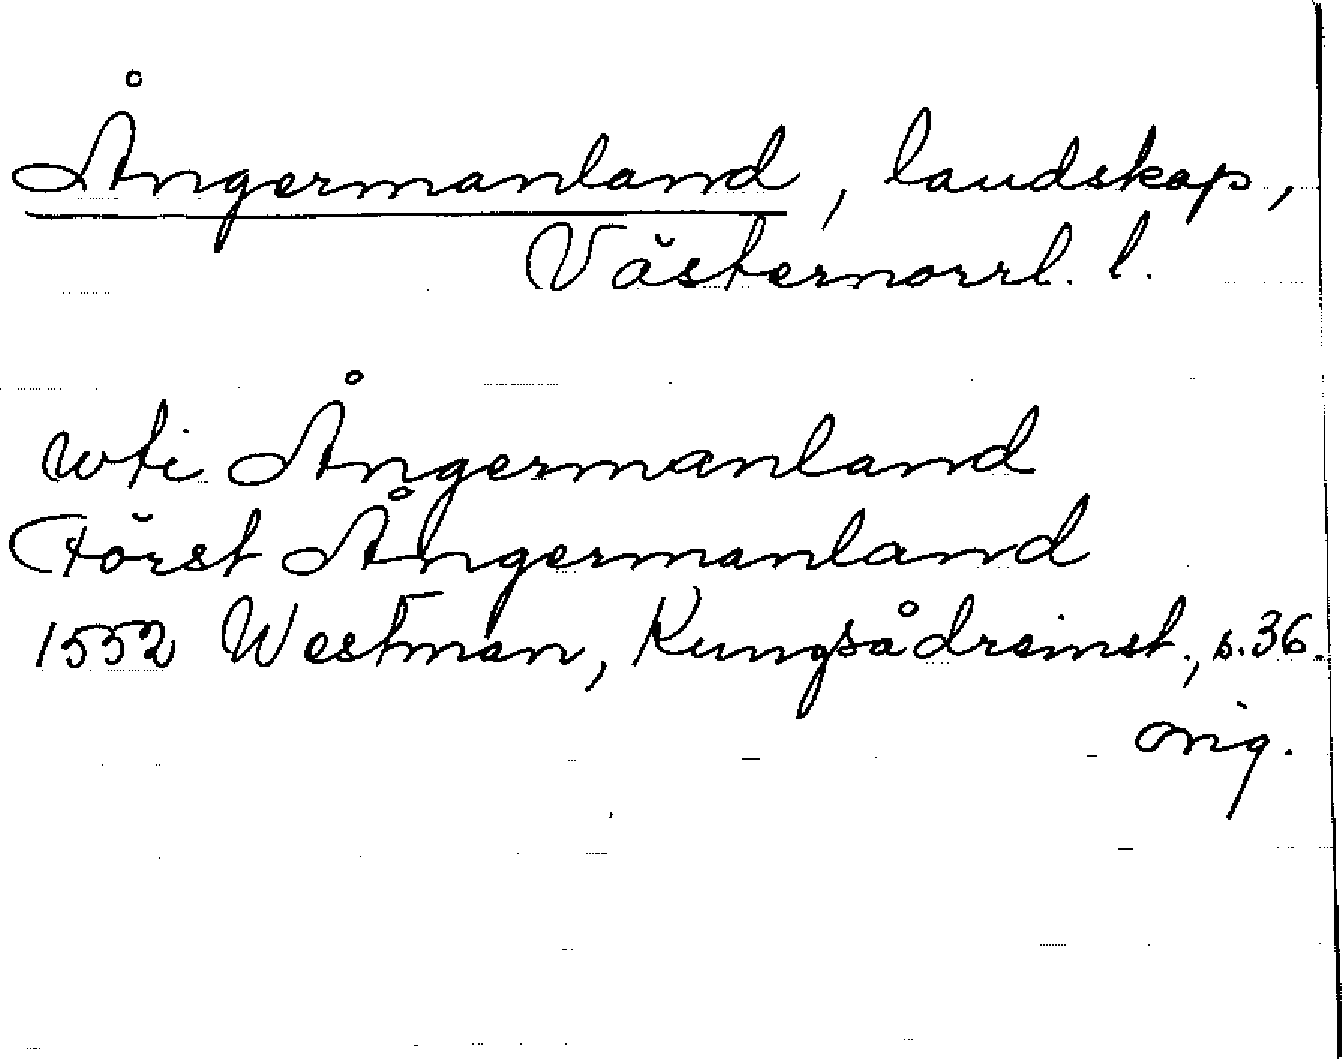 Ångermanland, landskap,
Västernorrl. l.
wti Ångermanland
Först Ångermanland
1552 Westman, Kungsådreinst., s. 36.
orig.